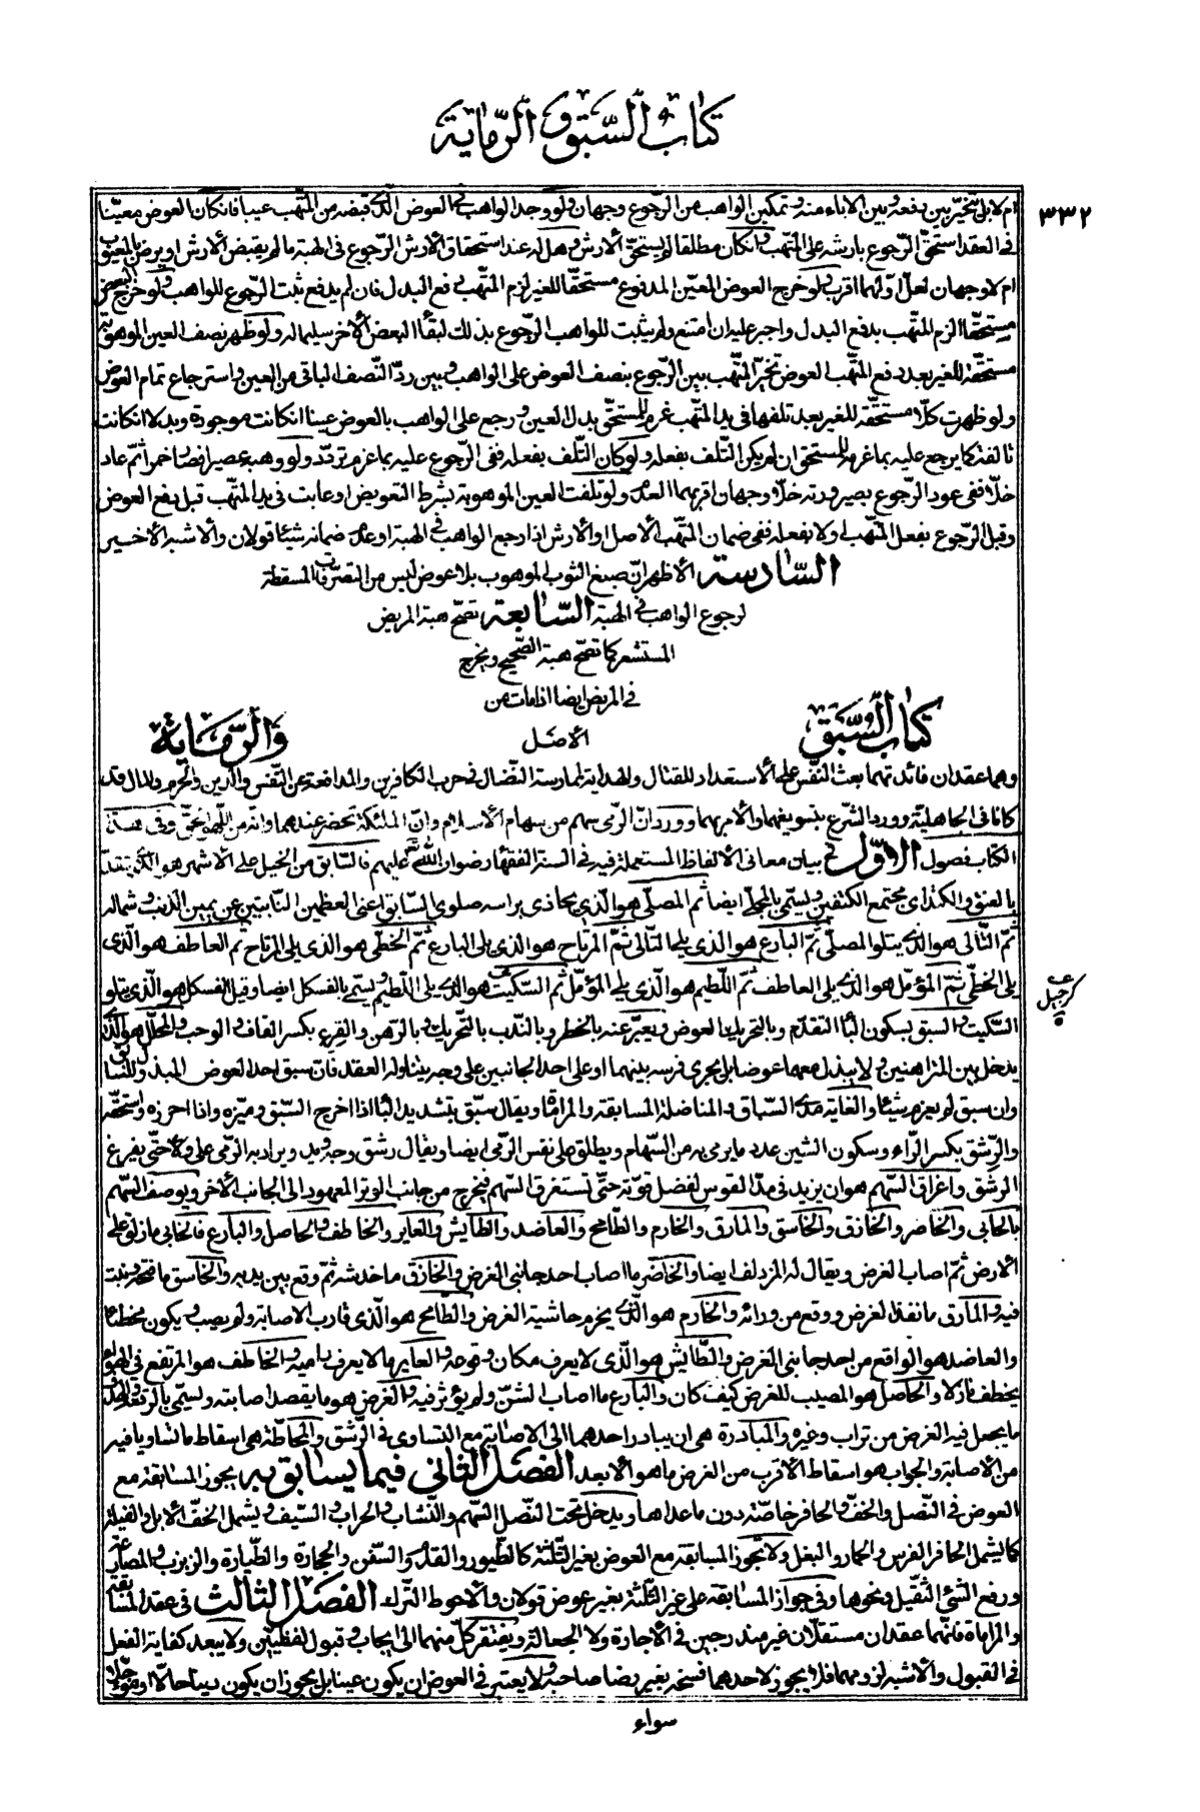 كتاب السبق والرماية
٣٣٢
ام لا بل يتخيّر بين دفعه وبين الاباء منه وتمكين الواهب من الرّجوع وجهان ولو وجد الواهب فى العوض الّذى قبضه من المتّهب عيبا فان كان العوض معيّنا
فى العقد استحقّ الرّجوع بارشه على المتّهب وان كان مطلقا لم يستحقّ الأرش وهل له عند استحقاق الأرش الرّجوع فى الهبة ما لم يقبض الأرش او يرض بالمعيوب
ام لا وجهان لعلّ اوّلهما اقرب ولو خرج العوض المعيّن المدفوع مستحقّا للغير لزم المتّهب دفع البدل فان لم يدفع ثبت الرّجوع للواهب ولو خرج البعض
مستحقّا الزم المتّهب بدفع البدل واجبر عليه ان امتنع ولم يثبت للواهب الرّجوع بذلك لبقاء البعض الأخر سليما له ولو ظهر نصف العين الموهوبة
مستحقّة للغير بعد دفع المتّهب العوض تخيّر المتّهب بين الرّجوع بنصف العوض على الواهب وبين ردّ النّصف الباقى من العين واسترجاع تمام العوض
ولو ظهرت كلّا مستحقّة للغير بعد تلفها فى يد المتّهب غرم للمستحقّ بدل العين ورجع على الواهب بالعوض عينا ان كانت موجودة وبدلا ان كانت
تالفة كما يرجع عليه بما غرمه للمستحقّ ان لم يكن التّلف بفعله ولو كان التّلف بفعله ففى الرّجوع عليه بما غرم تردّد ولو وهبه عصيرا فصار خمرا ثمّ عاد
خلّا ففى عود الرّجوع بصيرورته خلّا وجهان اقربهما العدم ولو تلفت العين الموهوبة بشرط التعويض او عابت فى يد المتّهب قبل دفع العوض
وقبل الرّجوع بفعل المتّهب او لا بفعله ففى ضمان المتّهب الأصل والأرش اذا رجع الواهب فى الهبة او عدم ضمانه شيئا قولان والأشبه الأخير
السّادسة الأظهر انّ صبغ الثوب الموهوب بلا عوض ليس من التصرّفات المسقطة
لرجوع الواهب فى الهبة السّابعة تصحّ هبة المريض
المستشعر كما تصحّ هبة الصّحيح ويخرج
فى المريض ايضا اذا مات من
الأصل
كتاب السّبق والرّماية
وهما عقدان فائدتهما بعث النّفس على الأستعداد للقتال والهداية لممارسة النّضال فى حرب الكافرين والمدافعة عن النّفس والدّين والحرم والمال قد
كانا فى الجاهليّة وورد الشّرع بتسويغهما والأمر بهما وورد انّ الرّمى سهم من سهام الأسلام وانّ الملئكة تحضر عندهما وانّه من اللّهو الحقّ وفى هذا
الكتاب فصول الاوّل فى بيان معانى الألفاظ المستعملة فيه فى السنة الفقهاء رضوان اللّه عليهم فالسّابق من الخيل على الأشهر هو الّذى يتقدّم
بالعنق والكتد اى مجتمع الكتفين ويسمّى بالمجلّى ايضا ثم المصلّى هو الّذى يحاذى براسه صلوى السّابق اعنى العظمين النّابتين عن يمين الذنب وشماله
ثمّ التّالى هو الّذى يتلو المصلّى ثمّ البارع هو الذى يلى التّالى ثمّ المرتاح هو الذى يلى البارع ثمّ الخطى هو الذى يلى المرتاح ثم العاطف هو الّذى
يلى الخطّى ثمّ المؤمّل هو الذى يلى العاطف ثمّ اللّطيم هو الّذى يلى المؤمّل ثم السّكيت هو الّذى يلى اللّطيم ويسمّى بالفسكل ايضا وقيل الفسكل هو الّذى يتلو
السّكيت والسبق بسكون الباء التقدّم وبالتحريك العوض ويعبّر عنه بالخطر وبالنّدب بالتّحريك وبالرّهن والقرع بكسر القاف والوجب والمحلّل هو الّذى
يدخل بين المتراهنين ولا يبذل معهما عوضا بل يجرى فرسه بينهما او على احد الجانبين على وجه يتناوله العقد فان سبق اخذ العوض المبذول للسّابق
وان سبق لم يغرم شيئا والغاية مدى السّباق والمناضلة المسابقة والمراماة ويقال سبّق بتشديد الباء اذا اخرج السّبق وميّزه واذا احرزه واستحقّه
والرّشق بكسر الرّاء وسكون الشين عدد ما يرمى به من السّهام ويطلق على نفس الرّمى ايضا ويقال رشق وجه ويد ويراد به الرّمى على ولاء حتّى يفرغ
الرشق واغراق السّهم هو ان يزيد فى مدّ القوس لفضل قوّته حتّى تستغرق السّهم فيخرج من جانب الوتر المعهود الى الجانب الأخر ويوصف السّهم
بالحابى والخاصر والخازق والخاسق والمارق والخارم والطّامح والعاضد والطّايش والعاير والخاطف والحاصل والبارع فالحابى ما زلق على
الأرض ثمّ اصاب الغرض ويقال له المزدلف ايضا والخاصر ما اصاب احد جانبى الغرض والخازق ما خدشه ثمّ وقع بين يديه والخاسق ما فتحه وثبت
فيه والمارق ما نفذ الغرض ووقع من ورائه والخارم هو الّذى يخرم حاشية الغرض والطّامح هو الّذى قارب الأصابة ولم يصب ويكون مخطئا
والعاضد هو الواقع من احد جانبى الغرض والطّايش هو الّذى لا يعرف مكان وقوعه والعاير ما لا يعرف راميه والخاطف هو المرتفع فى الهواء
يخطف نازلا والحاصل هو المصيب للغرض كيف كان والبارع ما اصاب الشنّ ولم يؤثر فيه والغرض هو ما يقصد اصابته ويسمّى بالرّقعة والهدف
ما يجعل فيه الغرض من تراب وغيره والمبادرة هى ان يبادر احدهما الى الاصابة مع التساوى فى الرّشق والمحاطّة هى اسقاط ما تساويا فيه
من الأصابة والحوابى هو اسقاط الأقرب من الغرض ما هو الأبعد الفصل الثانى فيما يسابق به يجوز المسابقة مع
العوض فى النّصل والخفّ والحافر خاصّة دون ما عداها ويدخل تحت النّصل السّهم والنّشاب والحراب والسّيف ويشمل الخفّ الأبل والفيلة
كما يشمل الحافر الفرس والحمار والبغل ولا تجوز المسابقة مع العوض بغير الثّلثة كالطّيور والقدم والسّفن والحجارة والطّيارة والزبزب والمصارعة
ورفع الشّئ الثّقيل ونحوها وفى جواز المسابقة على غير الثّلثة بغير عوض قولان والأحوط التّرك الفصل الثالث فى عقد المسابقة
والمراماة فانّهما عقدان مستقلّان غير مندرجين فى الأجارة ولا الجعالة ويفتقر كلّ منهما الى ايجاب وقبول لفظيّين ولا يبعد كفاية الفعل
فى القبول والأشبه لزومهما فلا يجوز لاحدهما فسخه بغير رضا صاحبه ولا يعتبر فى العوض ان يكون عينا بل يجوز ان يكون دينا حالّا او مؤجّلا
سواء